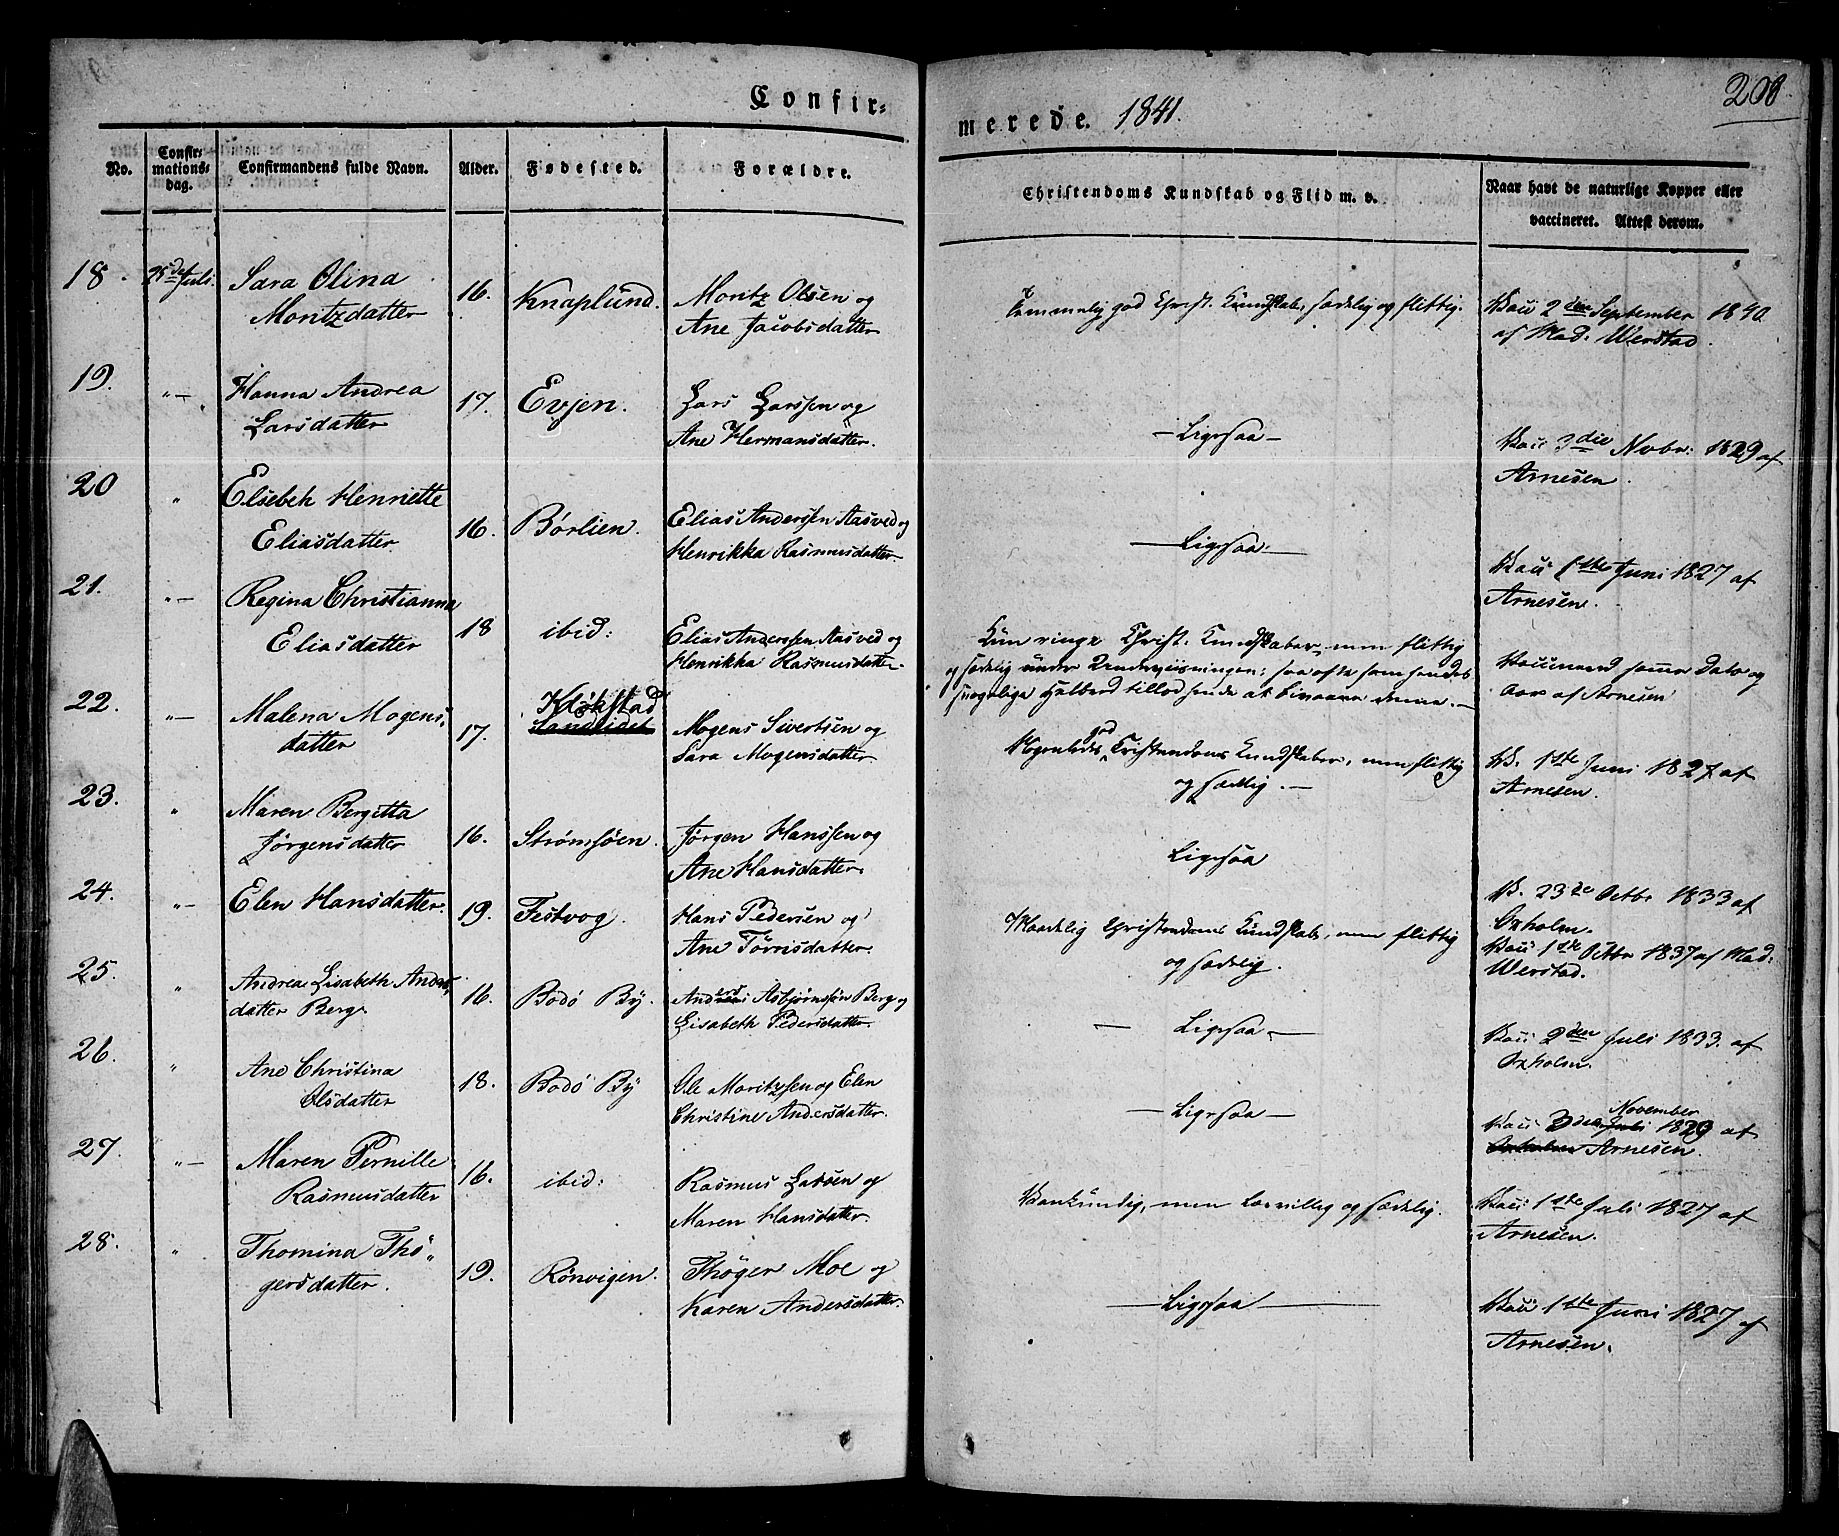 Confir-
merede. 1841.
200
No.
Confir-
mations-
dag.
Confirmandens fulde Navn.
Alder.
Fødested.
Forældre.
Christendoms Kundskab og Flid m. v.
Naar havt de naturlige Kopper eller
vaccineret. Attest derom.
18. 25de Juli. Sara Olina
Moritzdatter
16. Knaplund. Moritz Olsen og
Ane Jacobsdatter
Temmelig god Christ. Kundskab, sædelig og flittig.
Vacc 2den September 1840
af Mad. Werstad.
19. "— Hanna Andrea
Larsdatter
17. Evjen. Lars Larssen og
Ane Hermansdatter.
— Ligesaa —
Vacc 3die Novbr: 1829 af
Arnesen.
20 " Elsebeh Henriette
Eliasdatter
16. Börlien. Elias Anderssen Aasved og
Henrikka Rasmusdatter.
— Ligesaa. —
Vacc 1ste Juni 1827 af
Arnesen.
21. "— Regina Christianna
Eliasdatter
18 ibid: Elias Anderssen Aasved og
Henrikka Rasmusdatter.
Kun ringe Christ. Kundskaber, men flittig
og sædelig under Underviisningen; saa ofte som hendes
svagelige Helbred tillod hende at bivaane denne. —
Vaccineret samme Dato og
Aar af Arnesen
22. "— Malena Mogens-
datter
17. Klökstad
Sandlidet
Mogens Sivertsen og
Sara Mogensdatter.
god
Nogenledes Christendoms Kundskaber, men flittig
og sædelig. —
V. 1ste Juni 1827 af
Arnesen.
23. " Maren Bergitta
Jörgensdatter
16. Strömsöen. Jörgen Hanssen og
Ane Hansdatter.
Ligesaa
V. 23de Octbr 1833 af
Oxholm.
24. "— Elen Hansdatter.
19. Festvog. Hans Pedersen og
Ane Törrisdatter.
Maadelig Christendoms Kundskab, men flittig
og sædelig.
Vacc 1ste Octbr 1837 af Mad.
Werstad.
25. " Andrea Lisabeth Anders-
datter Berg.
16. Bodö By. Andreas Asbjörnsön Berg og
Lisabeth Pedersdatter.
— Ligesaa —
Vacc 2den Juli 1833. af
Oxholm.
26. " Ane Christina
Olsdatter
18. Bodö By Ole Moritzsen og Elen
Christine Andersdatter.
— Ligesaa —
November
Vacc 3die Juli 1829 af
Oxholm Arnesen.
27. "— Maren Pernille
Rasmusdatter
16. ibid: Rasmus Larsen og
Maren Hansdatter.
Vankundig, men lærvillig og sædelig.
Vacc 1ste Juli 1827 af
Arnesen.
28. " Thomina Thö-
gersdatter.
19. Rönvigen. Thöger Moe og
Karen Andersdatter.
— Ligesaa —
Vacc 1ste Juni 1827 af
Arnesen.